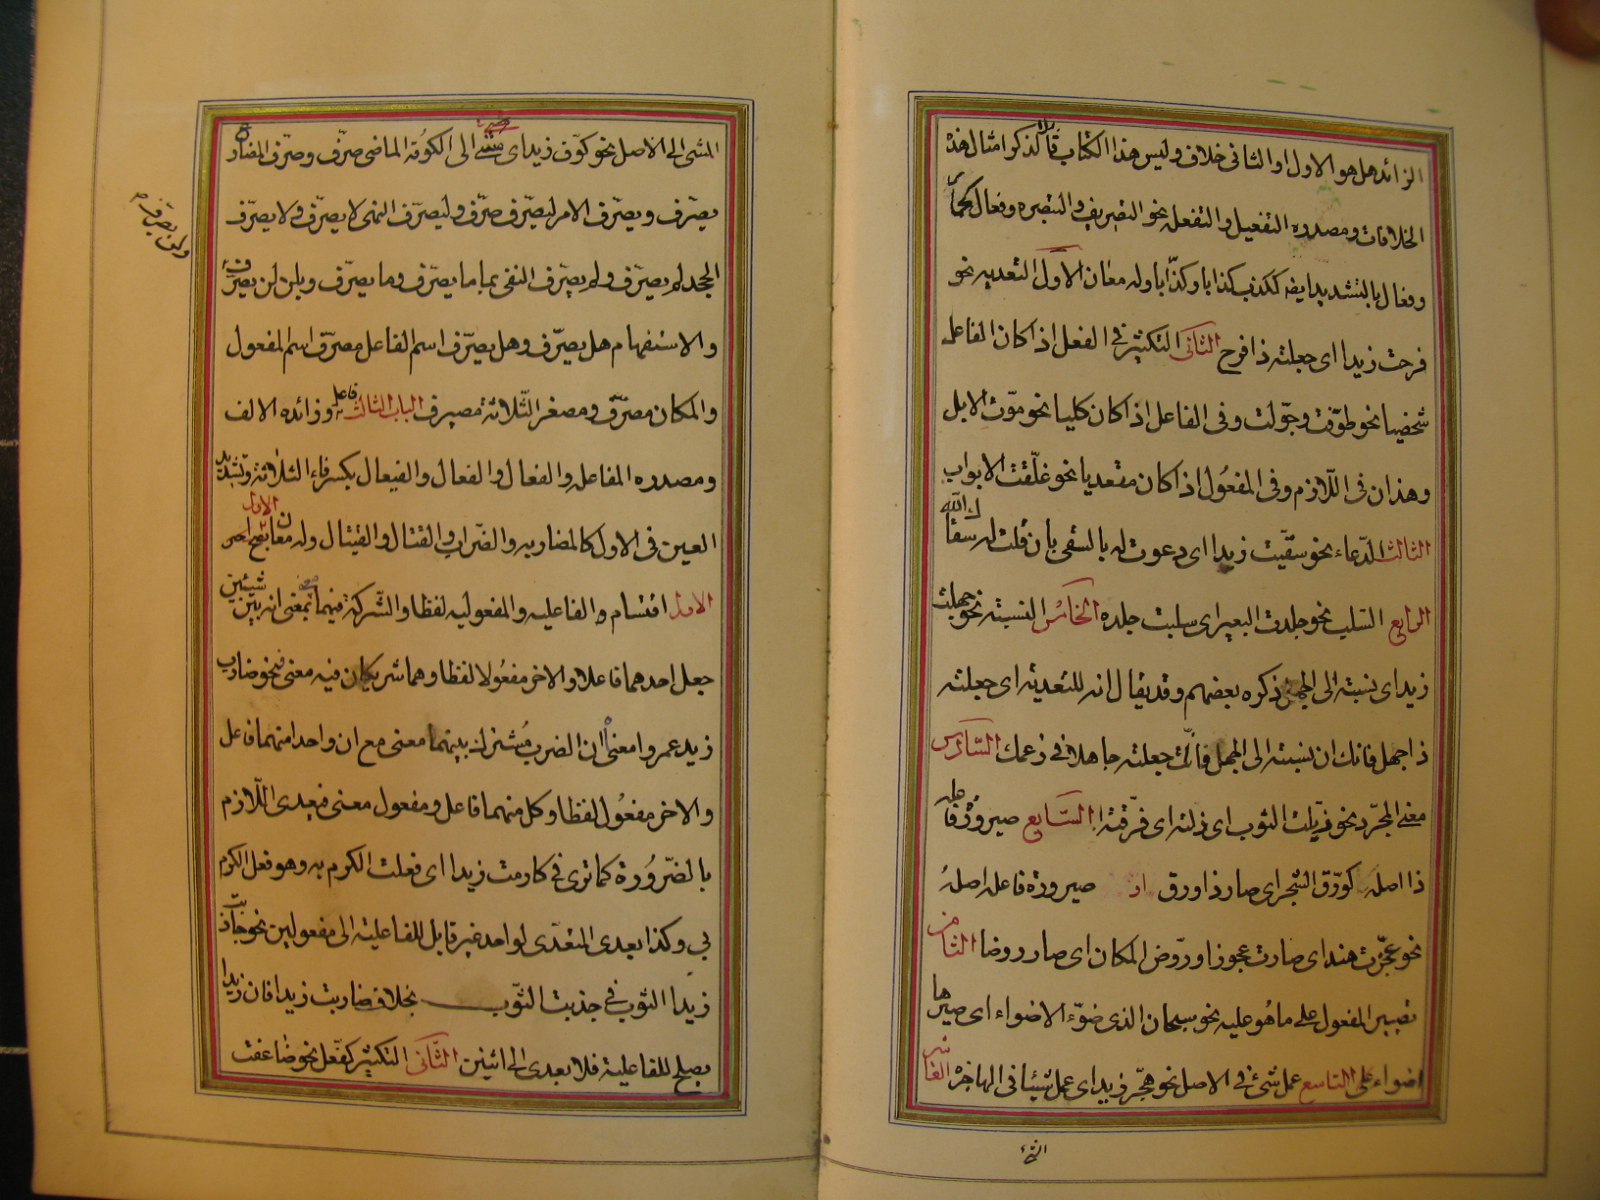 الزائد هل هو الاول او الثانى خلاف وليس هذا الكتاب قابلا لذكر امثال هذه
الخلافات ومصدره التفعيل والتفعله نحو التصريف والتبصره وفعال
وفعال بالتشديد ايضا ككذب كذابا وكذّابا وله معان الاول التعديه نحو
فرحت زيدا اى جعلته ذا فرح الثانى التكثير فى الفعل اذا كان الفاعل
شخصيا نحو طوّفت وجوّلت وفى الفاعل اذا كان كليا نحو موّت الابل
وهذان فى اللّازم وفى المفعُول اذا كان متعديا نحو غلّقت الابواب
الثالث الدّعاء نحو سقّيت زيدا اى دعوت له بالسقى بان قلت له سقاك الله
الرابع السّلب نحو جلدت البعير اى سلبت جلده الخامس النسبته نحو جهلت
زيدا اى نسبته الى الجهل ذكره بعضهم وقد يقال انه للتعديته اى جعلته
ذا جهل فانك ان نسبته الى الجهل فانّك جعلته جاهلا فى زعمك السّادس
معنى المجّرد نحو زيّلت الثوب اى زلته اى فرّقته السّابع صيرورة فاعله
ذا اصله كورّق الشجر اى صار ذا ورق او صيرورة فاعله اصلهُ
نحو عجّزت هند اى صارت عجوزا وروّض المكان اى صار روضا الثامن
تصيير المفعول على ما هُو عليه نحو سبحان الذى ضوّء الاضواء اى صيرها
اضواء على التاسع عمل شئ فى الاصل نحو هجّر زيد اى عمل شيئا فى الهاجرة العاشر
المشى الى الاصل نحو كوّف زيد اى مشى الى الكوفة الماضى صرّف وصرّف المضارع
يصرّف ويصرّف الامر ليصرّف صرّف وليصرّف النهى لا يصرّف ولا يصرّف
الجحد لم يصرّف ولم يصرّف النفى بما ما يصرّف وما يصرّف وبلن لن يصرّف
ولن يصرّف
والاستفهام هل يصرّف وهل يصرّف اسم الفاعل مصرّف اسم المفعول
والمكان مصرّف ومصغر الثّلاثة مصيرف الباب الثالث فاعل وزائده الالف
ومصدره المفاعله والفعال والفعال والفيعال بكسر فاء الثلاثة وتشديد
العين فى الاول كالمضاربه والضّراب والقتال والقيتال وله معان
الاول اقتسام الفاعليه والمفعوليه لفظا والشّركة فيهما معنى بمعنى انه بين شيئين
جعل احدهما فاعلا والاخر مفعُولا لفظا وهما شريكان فيه معنى فنحو ضارب
زيد عمروا معناه ان الضرب مُشترك بينهما معنى مع ان واحدا منهما فاعل
والاخر مفعُول لفظا وكل منهما فاعل ومفعول معنى فيعدى اللّازم
بالضّرُورة كما ترى فى كارمت زيدا اى فعلت الكرم به وهو فعل الكرم
بى وكذا يعدى المتعّدى لواحد غير قابل للفاعليته الى مفعولين نحو جاذبت
زيدا الثوب فى جذبت الثّوب بخلاف ضاربت زيدا فان زيدا
يصلح للفاعلية فلا يعدى الى اثنين الثّانى التكثير كفعّل نحو ضاعفت